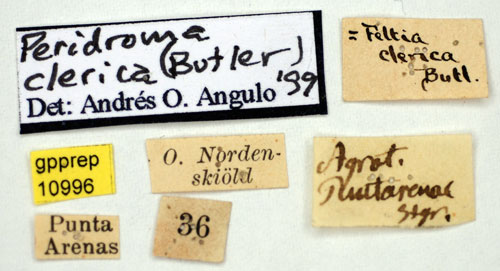 Peridroma
clerica (Butler)
'99
Det: Andrés O. Angulo
= Feltia
clerica
Butl.
gpprep
10996
O. Norden-
skiöld
Agrot.
Puntarenae
Stgr.
Punta
Arenas
36